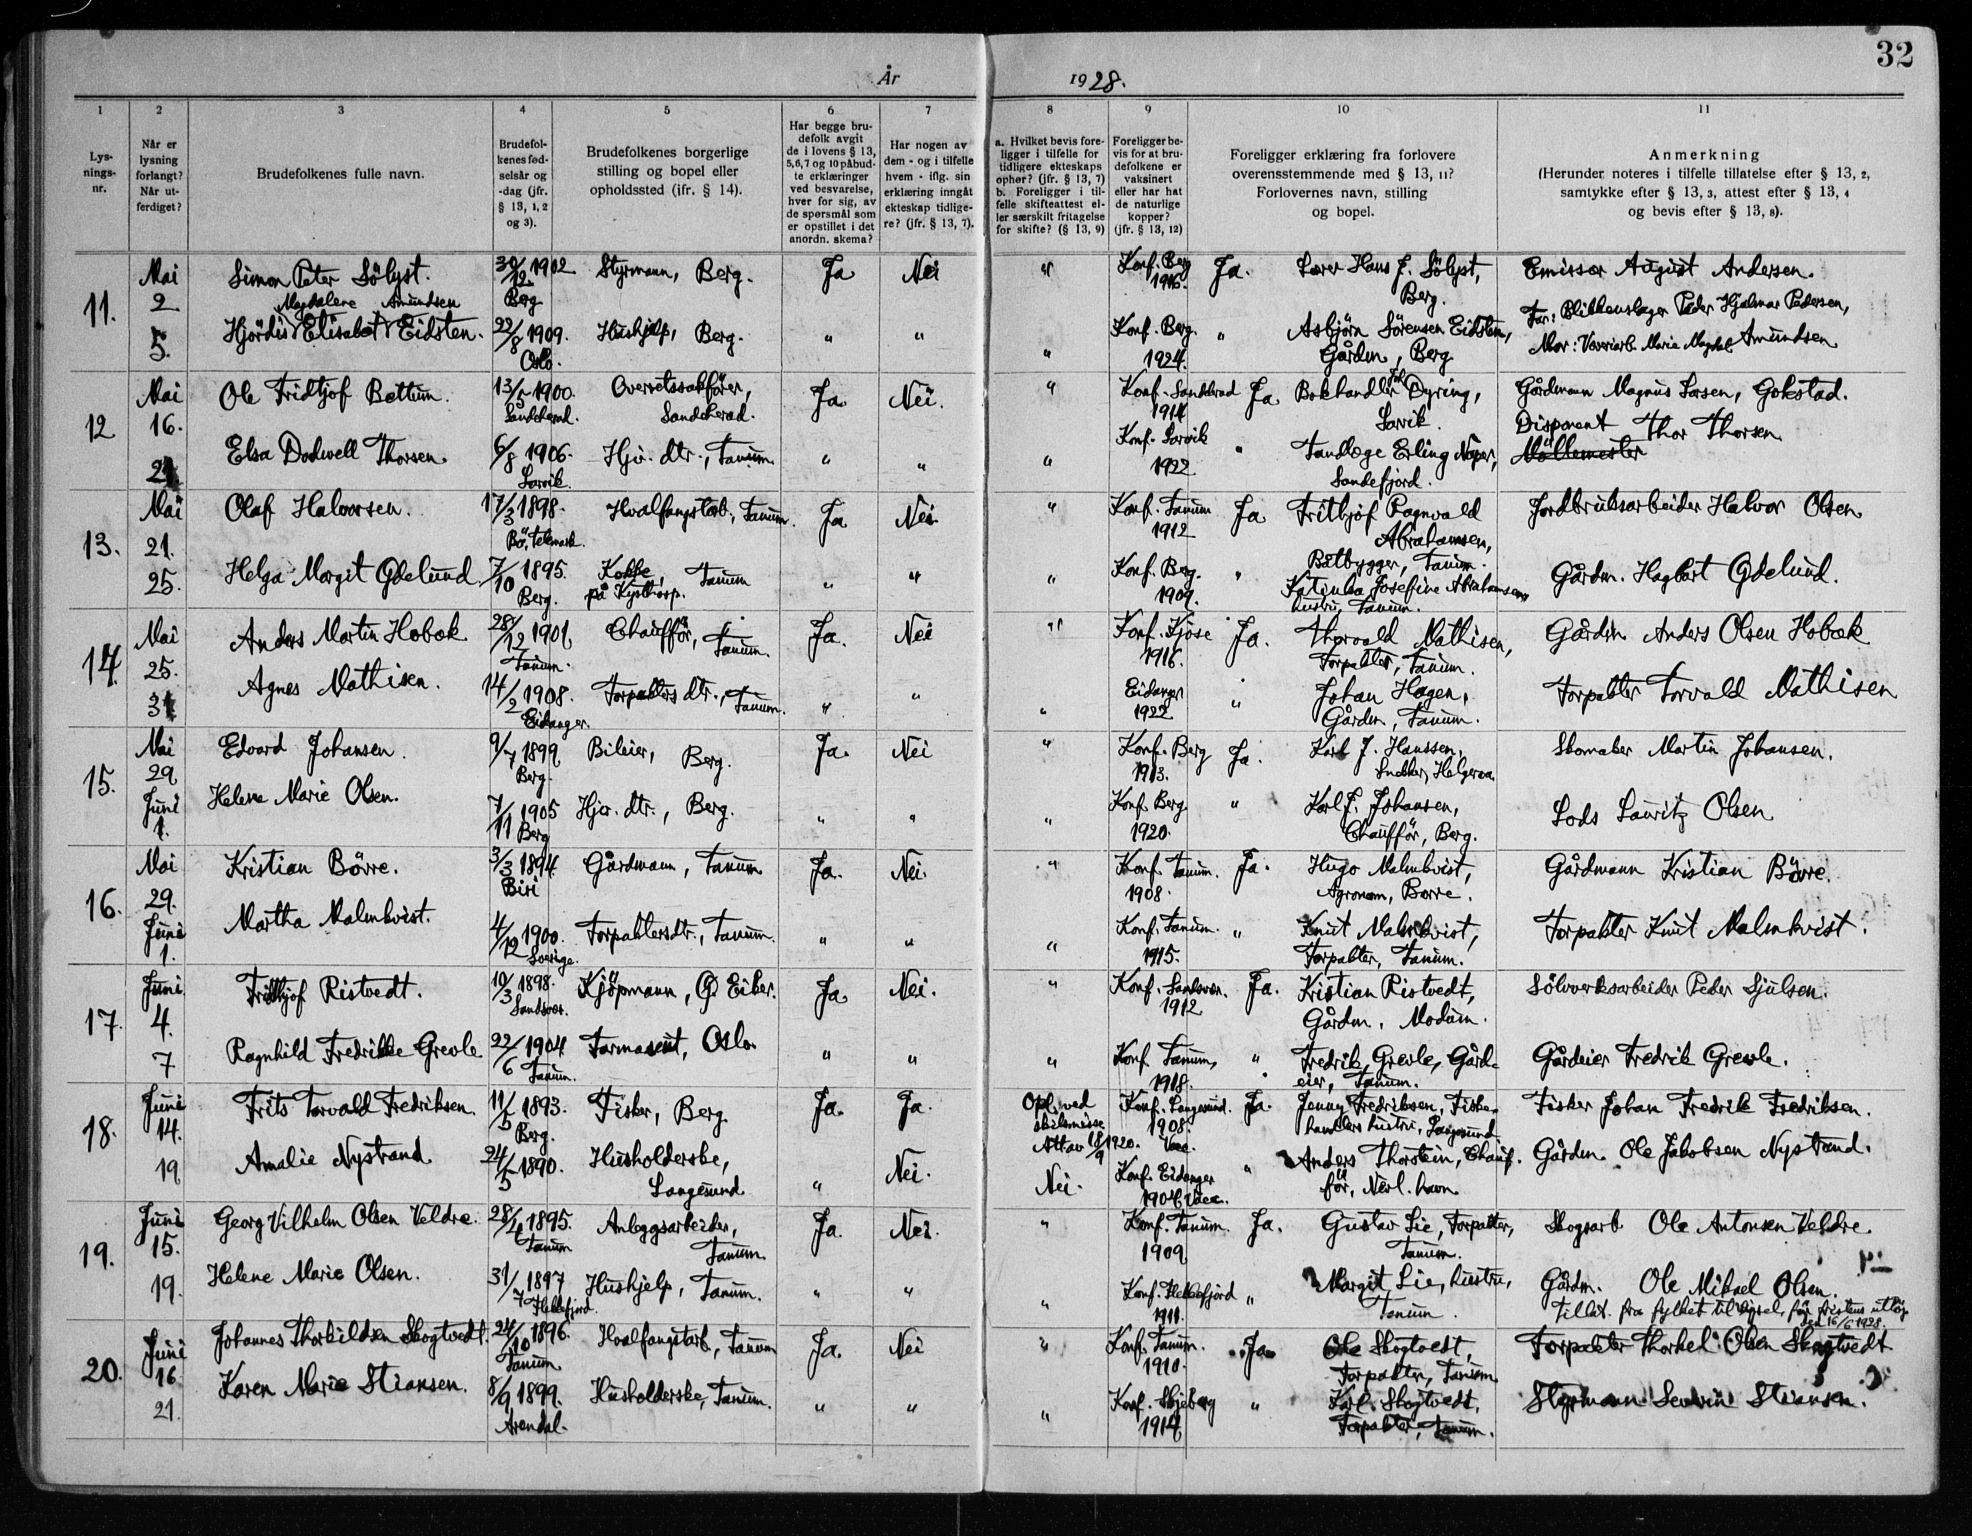 32
År 1928.
1 2 3 4 5 6 7 8 9 10 11
Lys-
nings-
nr.
Når er
lysning
forlangt?
Når ut-
ferdiget?
Brudefolkenes fulle navn.
Brudefol-
kenes fød-
selsår og
-dag (jfr.
§ 13, 1, 2
og 3).
Brudefolkenes borgerlige
stilling og bopel eller
opholdssted (ifr. § 14).
Har begge bru-
defolk avgit
de i lovens § 13,
5,6,7 og 10 påbud-
te erklæringer
ved besvarelse,
hver for sig, av
de spørsmål som
er opstillet i det
anordn. skema?
Har nogen av
dem - og i tilfelle
hvem - iflg. sin
erklæring inngåt
ekteskap tidlige-
re? (jfr. § 13, 7).
a. Hvilket bevis fore-
ligger i tilfelle for
tidligere ekteskaps
ophør? (jfr. § 13, 7)
b. Foreligger i til-
felle skifteattest el-
ler særskilt fritagelse
for skifte? (§ 13, 9)
Foreligger be-
vis for at bru-
defolkene er
vaksinert
eller har hat
de naturlige
kopper?
(jfr. § 13, 12)
Foreligger erklæring fra forlovere
overensstemmende med § 13, 11?
Forlovernes navn, stilling
og bopel.
Anmerkning
(Herunder noteres i tilfelle tillatelse efter § 13, 2,
samtykke efter § 13, 3, attest efter § 13, 4
og bevis efter § 13, 8).
11. Mai 2 5.
Simon Peter Sölyst. 30/12 1902 Berg Styrmann, Berg. Ja Nei " Konf. Berg 1916. Ja. Lærer Hans J. Sölyst, Berg. Emissær August Andersen.
Magdalene Amundsen
Hjördis Elisabet Eidsten. 22/8 1909. Oslo. Hushjelp, Berg. " " " Konf. Berg. 1924. " Asbjörn Sörensen Eidsten, Gårdm, Berg. Far: Blikkenslager Peder Hjalmar Pedersen,
Mor: Væveriarb. Marie Magdal. Amundsen
12 Mai 16.
Ole Fridtjof Bettum. 13/5 1900. Sandeherad. Overretssakförer, Sandeherad. Ja Nei. " Konf. Sandeherad 1914 Ja Bokhandler Dyring, Larvik. Gårdmann Magnus Larsen, Gokstad.
Elsa Dodwell Thorsen. 6/8 1906. Larvik. Hjv. dtr., Tanum. " " " Konf. Larvik 1922 " Tandlæge Erling Næper, Sandefjord. Disponent Thor Thorsen
Möllemester
13. Mai 21. 25.
Olaf Halvorsen. 17/3 1898. Bö, Telemark. Hvalfangstarb., Tanum. Ja Nei " Konf. Tanum 1912 Ja Fritjof Ragnvald Abrahamsen, Båtbygger, Tanum. Jordbruksarbeider Halvor Olsen
Helga Margit Ødelund 7/10 1895. Berg. Kokke, på Kysthosp. Tanum " " " Konf. Berg. 1909. " Katinka Josefine Abrahamsen, hustru, Tanum. Gårdm. Hagbart Ødelund.
14. Mai 25. 31
Anders Martin Hobæk 28/12 1901. Tanum. Chauffør, Tanum. Ja. Nei " Konf. Kjose 1916. Ja. Thorvald Mathisen, Forpakter, Tanum. Gårdm Anders Olsen Hobæk
Agnes Mathisen. 14/2 1908. Eidanger. Forpakters dtr., Tanum. " " " Eidanger 1922 " Johan Hagen, Gårdm, Tanum. Forpakter Torvald Mathisen
15. Mai 29. Juni 1.
Edvard Johansen. 9/7 1899 Berg. Bileier, Berg. Ja. Nei " Konf. Berg 1913. Ja. Karl J. Hanssen, Snekker, Helgeroa. Skomaker Martin Johansen.
Helene Marie Olsen. 7/11 1905 Berg Hjv. dtr., Berg. " " " Konf. Berg 1920. " Karl J. Johansen, Chauffør, Berg. Lods Lauritz Olsen
16. Mai 29. Juni 1.
Kristian Börre. 3/3 1894 Biri Gårdmann, Tanum Ja. Nei. " Konf. Tanum. 1908. Ja. Hugo Malmkvist, Agronom, Borre. Gårdmann Kristian Börre.
Martha Malmkvist. 4/12 1900. Sverige. Forpaktersdtr., Tanum. " " " Konf. Tanum. 1915. " Knut Malmkvist, Forpakter, Tanum. Forpakter Knut Malmkvist.
17. Juni 4. 7
Fridtjof Ristvedt. 10/3 1898. Sandsvær. Kjöpmann, Ø. Eiker. Ja Nei. " Konf. Sandsvær. 1912 Ja. Kristian Ristvedt, Gårdm. Modum. Sölvverksarbeider Peder Sjulsen.
Ragnhild Fredrikke Grevle 22/6 1904 Tanum. Farmaseut, Oslo " " " Konf. Tanum, 1918. " Fredrik Grevle, Gård-
eier, Tanum. Gårdeier Fredrik Grevle.
18. Juni 14. 19
Frits Torvald Fredriksen. 11/5 1893. Berg. Fisker, Berg Ja. Ja. Opl. ved skilsmisse Konf. Langesund. 1908. Vacc. Ja. Jenny Fredriksen, Fiske-
handlers hustru, Langesund Fisker Johan Fredrik Fredriksen.
Amalie Nystrand 24/5 1890. Husholderske, Langesund " Nei. Nei. Konf. Eidanger 1904. Vacc. " Anders Thorstein, Chauf-
før, Nevl. havn Gårdm. Ole Jakobsen Nystrand.
19. Juni 15. 19.
Georg Vilhelm Olsen Veldre. 28/4 1895. Tanum Anleggsarbeider, Tanum. Ja. Nei. " Konf. Tanum. 1909. Ja. Gustav Lie, Forpakter, Tanum. Skogsarb Ole Antonsen Veldre
Helene Marie Olsen. 31/7 1897 Hushjelp, Tanum. " " " 1911. " Margit Lie, hustru, Tanum. Gårdm. Ole Mikael Olsen.
Tillat. fra fylket til vigsel, för fristens utlöp
16/6 1928.
20. Juni 16. 21.
Johannes Thorkildsen Skogtvedt. 24/10 1896. Tanum Hvalfangstarb, Tanum Ja. Nei " Konf. Tanum. 1910. Ja. Ole Skogtvedt, Forpakter, Tanum Forpakter Thorkel Olsen Skogtvedt
Karen Marie Stiansen. 8/9 1899. Arendal. Husholderske, Tanum. " " " Konf. Skjeberg 1914 " Karl Skogtvedt, Forpakter, Tanum. Styrmann Severin Stiansen.